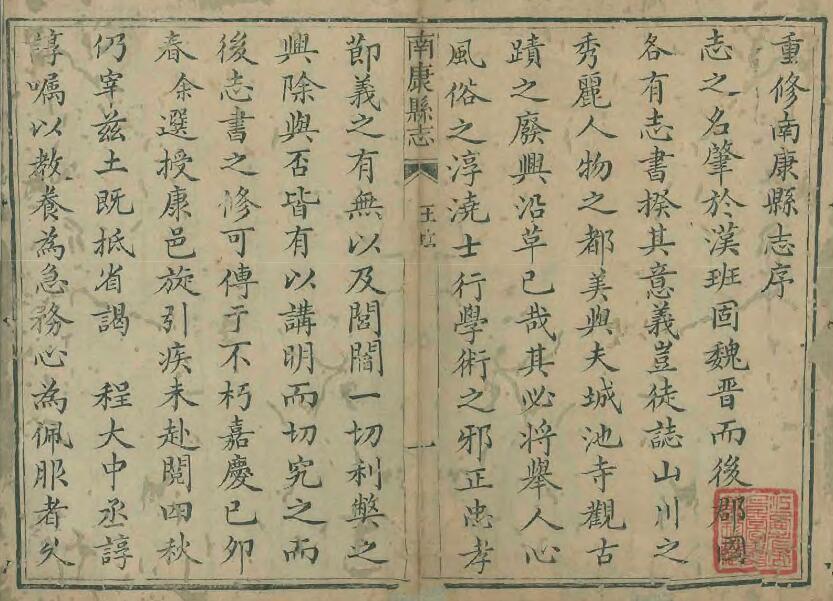 重修南康縣志序
志之名肇於漢班固魏晋而後郡國
各有志書揆其意義豈徒誌山川之
秀麗人物之都美與夫城池寺觀古
蹟之廢興沿革已哉其必將舉人心
風俗之淳澆士行學術之邪正忠孝
南康縣志
一
節義之有無以及閭閻一切利弊之
興除與否皆有以講明而切究之而
後志書之修可傳于不朽嘉慶己卯
春余選授康邑旋引疾未赴閱四秋
仍宰兹土既抵省謁 程大中丞諄
諄囑以教養為急務心為佩服者久